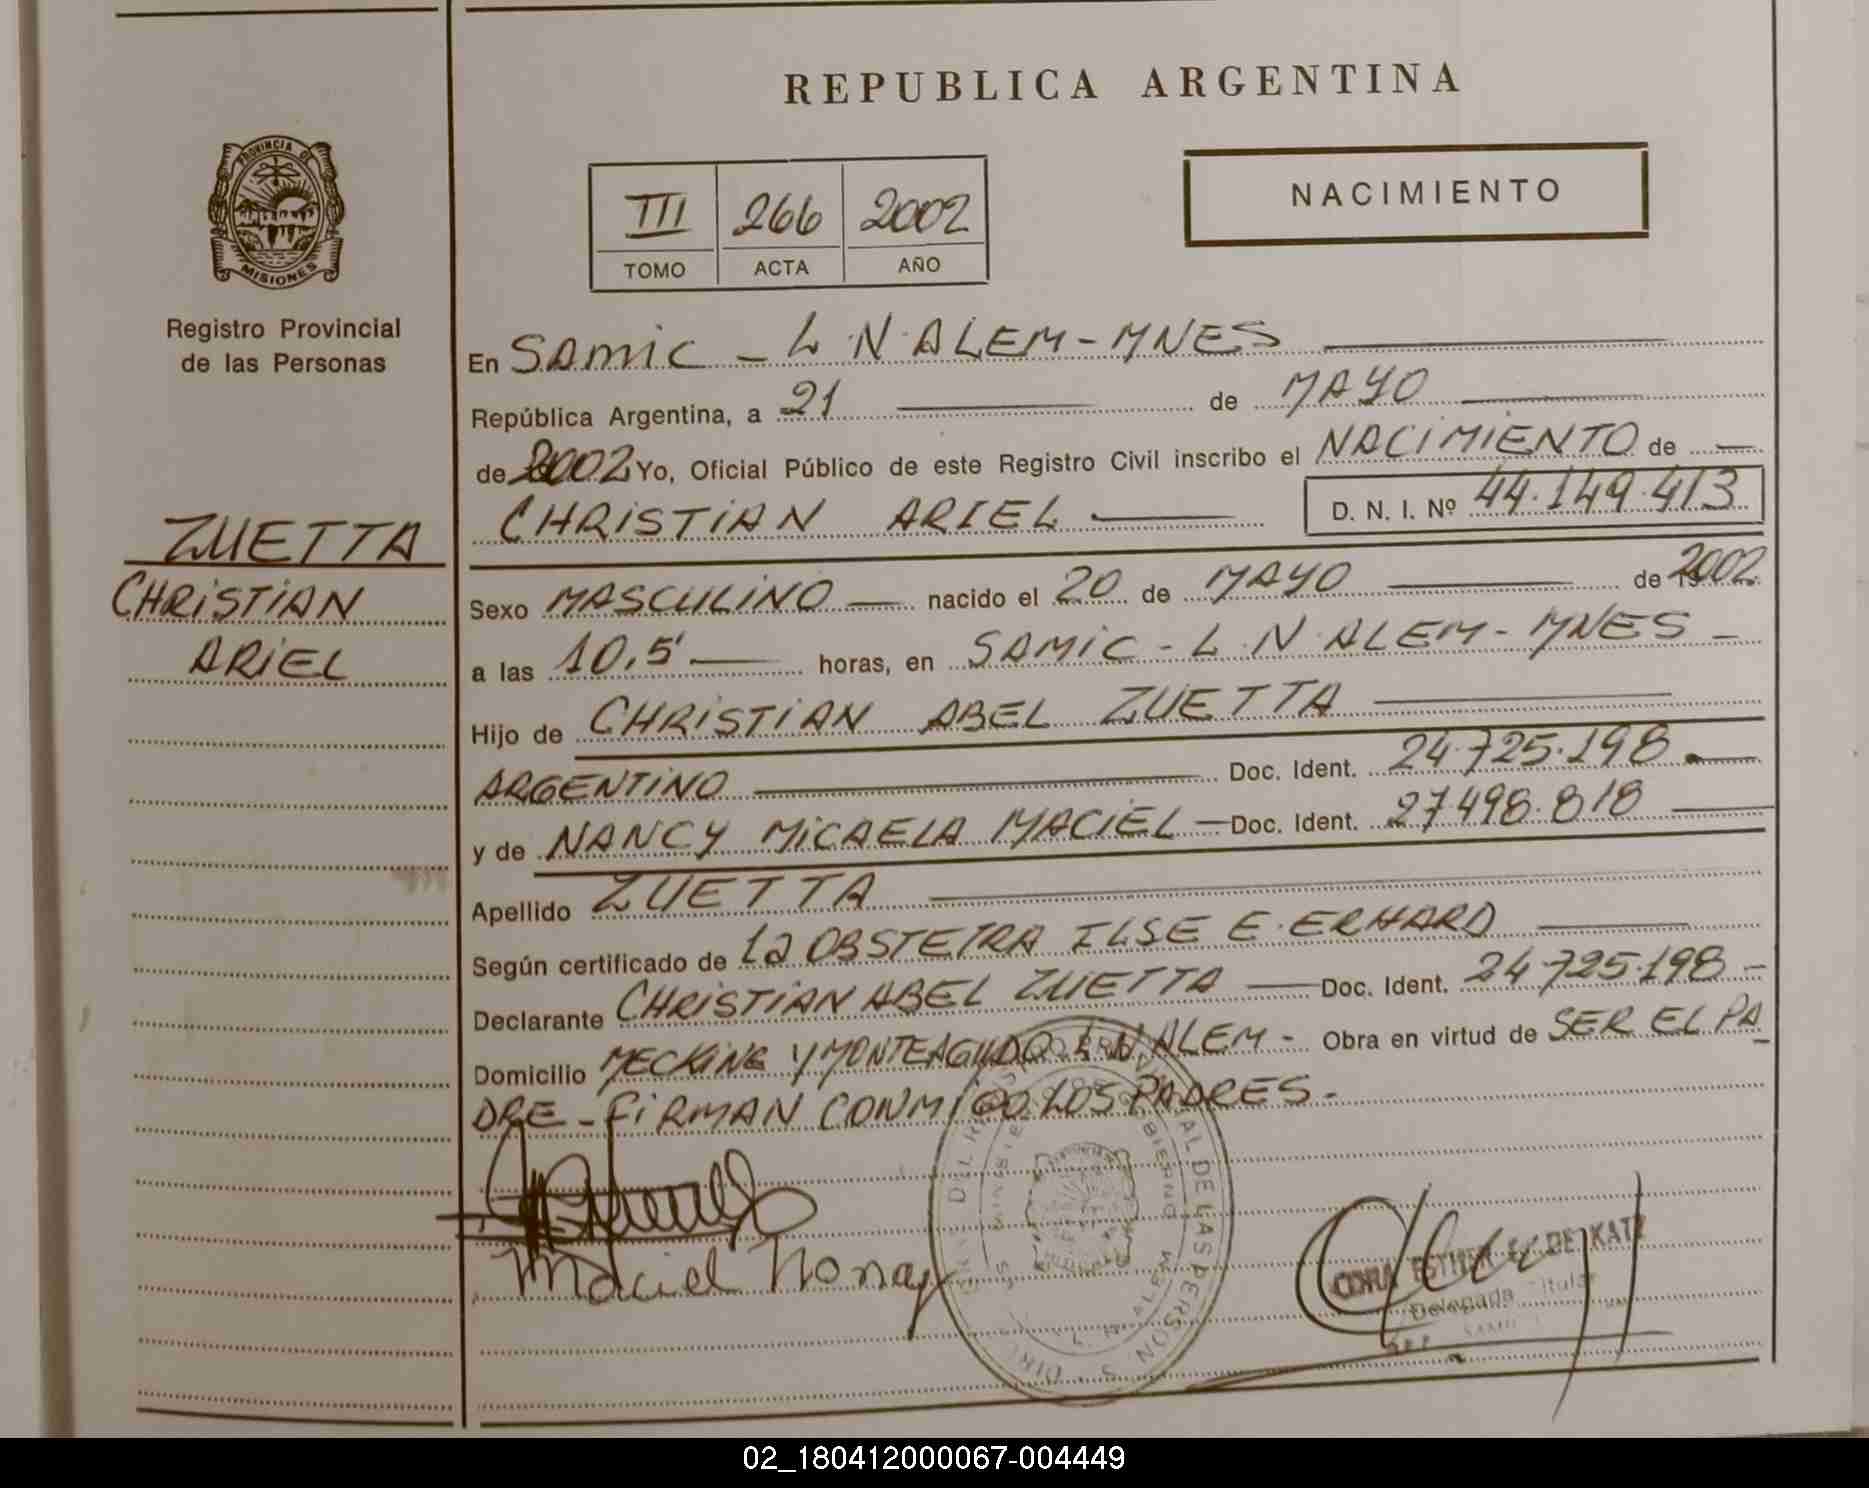 REPUBLICA ARGENTINA
PROVINCIA DE
MISIONES
Registro Provincial
de las Personas
NACIMIENTO
III 266 2002
TOMO ACTA AÑO
ZUETTA
CHRISTIAN
ARIEL
En SAMIC - L.N.ALEM - MNES
República Argentina, a 21 de MAYO
de 2002 Yo, Oficial Público de este Registro Civil inscribo el NACIMIENTO de
CHRISTIAN ARIEL D. N. I. Nº 44.149.413
Sexo MASCULINO nacido el 20 de MAYO de 2002
a las 10,5' horas, en SAMIC - L.N.ALEM - MNES -
Hijo de CHRISTIAN ABEL ZUETTA
ARGENTINO Doc. Ident. 24.725.198.
y de NANCY MICAELA MACIEL Doc. Ident. 27.498.818
Apellido ZUETTA
Según certificado de La OBSTETRA ILSE E. ERHARD
Declarante CHRISTIAN ABEL ZUETTA Doc. Ident. 24.725.198 -
Domicilio MECKING Y MONTEAGUDO L.N.ALEM - Obra en virtud de SER EL PA
DRE - FIRMAN CONMIGO LOS PADRES.-
Maciel
DE LAS PERSON S
ALEM
ESTHER DE KATZ
Delegada Titular
02_180412000067-004449